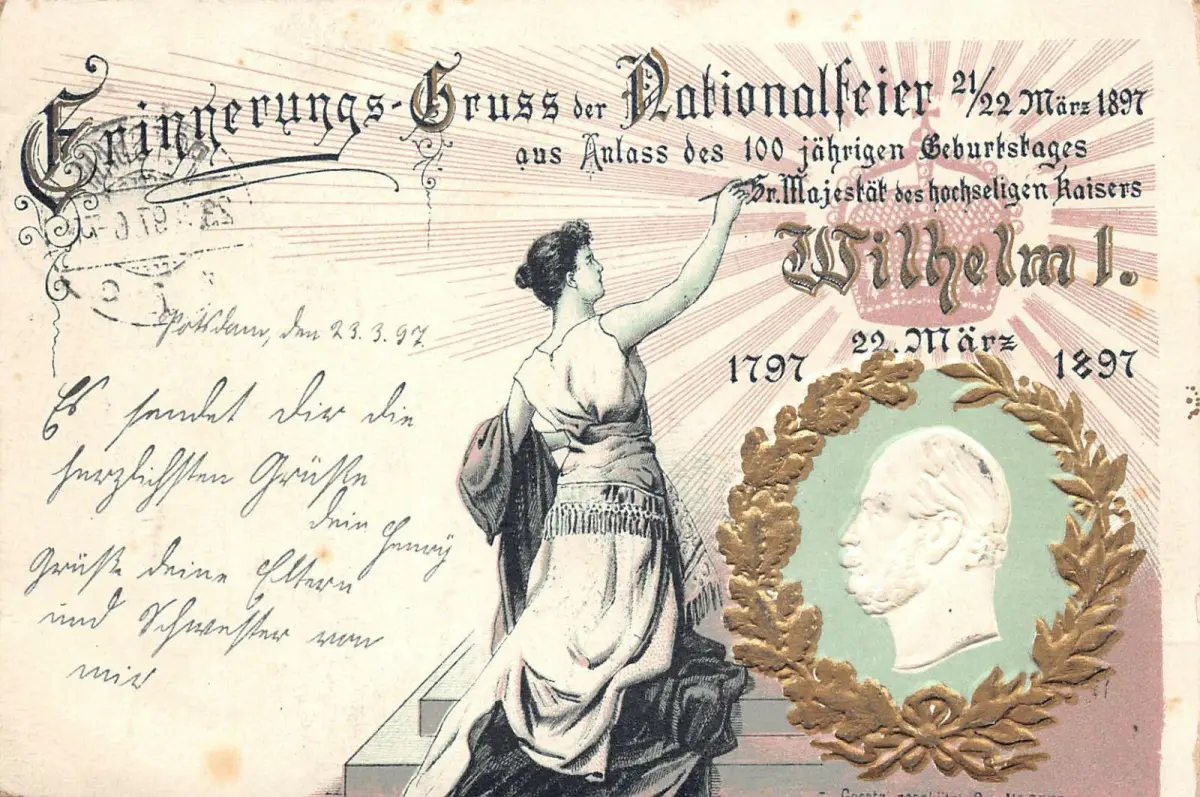 Erinnerungs-Gruss der Nationalfeier 21/22 März 1897
aus Anlass des 100 jährigen Geburtstages
Sr. Majestät des hochseligen Kaisers
Wilhelm I.
22. März
1797 1897
Potsdam, den 23.3.97.
Es sendet Dir die
herzlichsten Grüße
dein Henry
Grüße deine Eltern
und Schwester von
mir